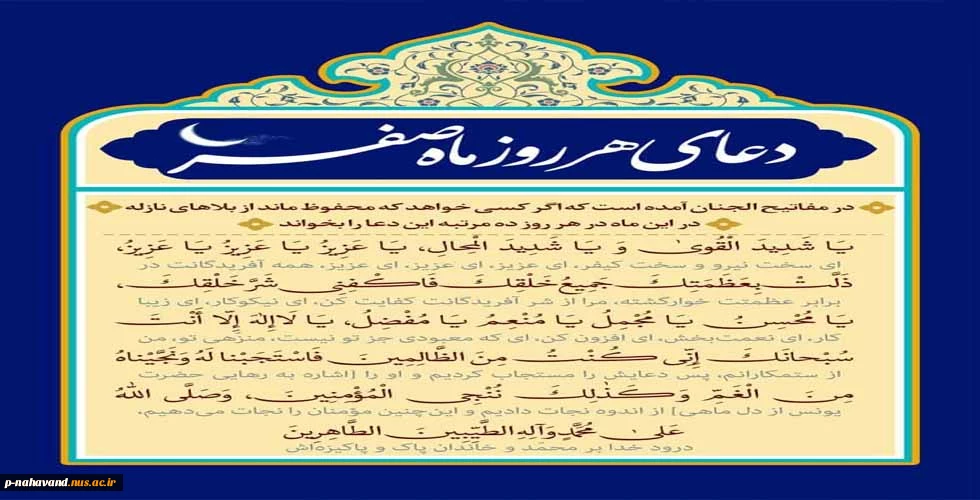 دعای هر روز ماه صفر
در مفاتیح الجنان آمده است که اگر کسی خواهد که محفوظ ماند از بلاهای نازله
در این ماه در هر روز ده مرتبه این دعا را بخواند
يَا شَدِيدَ الْقُوىٰ وَ يَا شَدِيدَ الْمِحَالِ، يَا عَزِيزُ يَا عَزِيزُ يَا عَزِيزُ،
ای سخت نیرو و سخت کیفر، ای عزیز، ای عزیز، ای عزیز، همه آفریدگانت در
ذَلَّتْ بِعَظَمَتِكَ جَمِيعُ خَلْقِكَ فَاكْفِنِي شَرَّ خَلْقِكَ،
برابر عظمتت خوارگشته، مرا از شر آفریدگانت کفایت کن، ای نیکوکار، ای زیبا
يَا مُحْسِنُ يَا مُجْمِلُ يَا مُنْعِمُ يَا مُفْضِلُ، يَا لَاإِلهَ إِلّا أَنْتَ
کار، ای نعمت‌بخش، ای افزون کن، ای که معبودی جز تو نیست، منزهی تو، من
سُبْحانَكَ إِنِّي كُنْتُ مِنَ الظَّالِمِينَ فَاسْتَجَبْنا لَهُ وَنَجَّيْناهُ
از ستمکارانم، پس دعایش را مستجاب کردیم و او را [اشاره به رهایی حضرت
مِنَ الْغَمِّ وَكَذٰلِكَ نُنْجِي الْمُؤْمِنِينَ، وَصَلَّى اللّٰهُ
یونس از دل ماهی] از اندوه نجات دادیم و این‌چنین مؤمنان را نجات می‌دهیم،
عَلىٰ مُحَمَّدٍ وَآلِهِ الطَّيِّبِينَ الطَّاهِرِينَ
درود خدا بر محمّد و خاندان پاک و پاکیزه‌اش
p-nahavand.nus.ac.ir